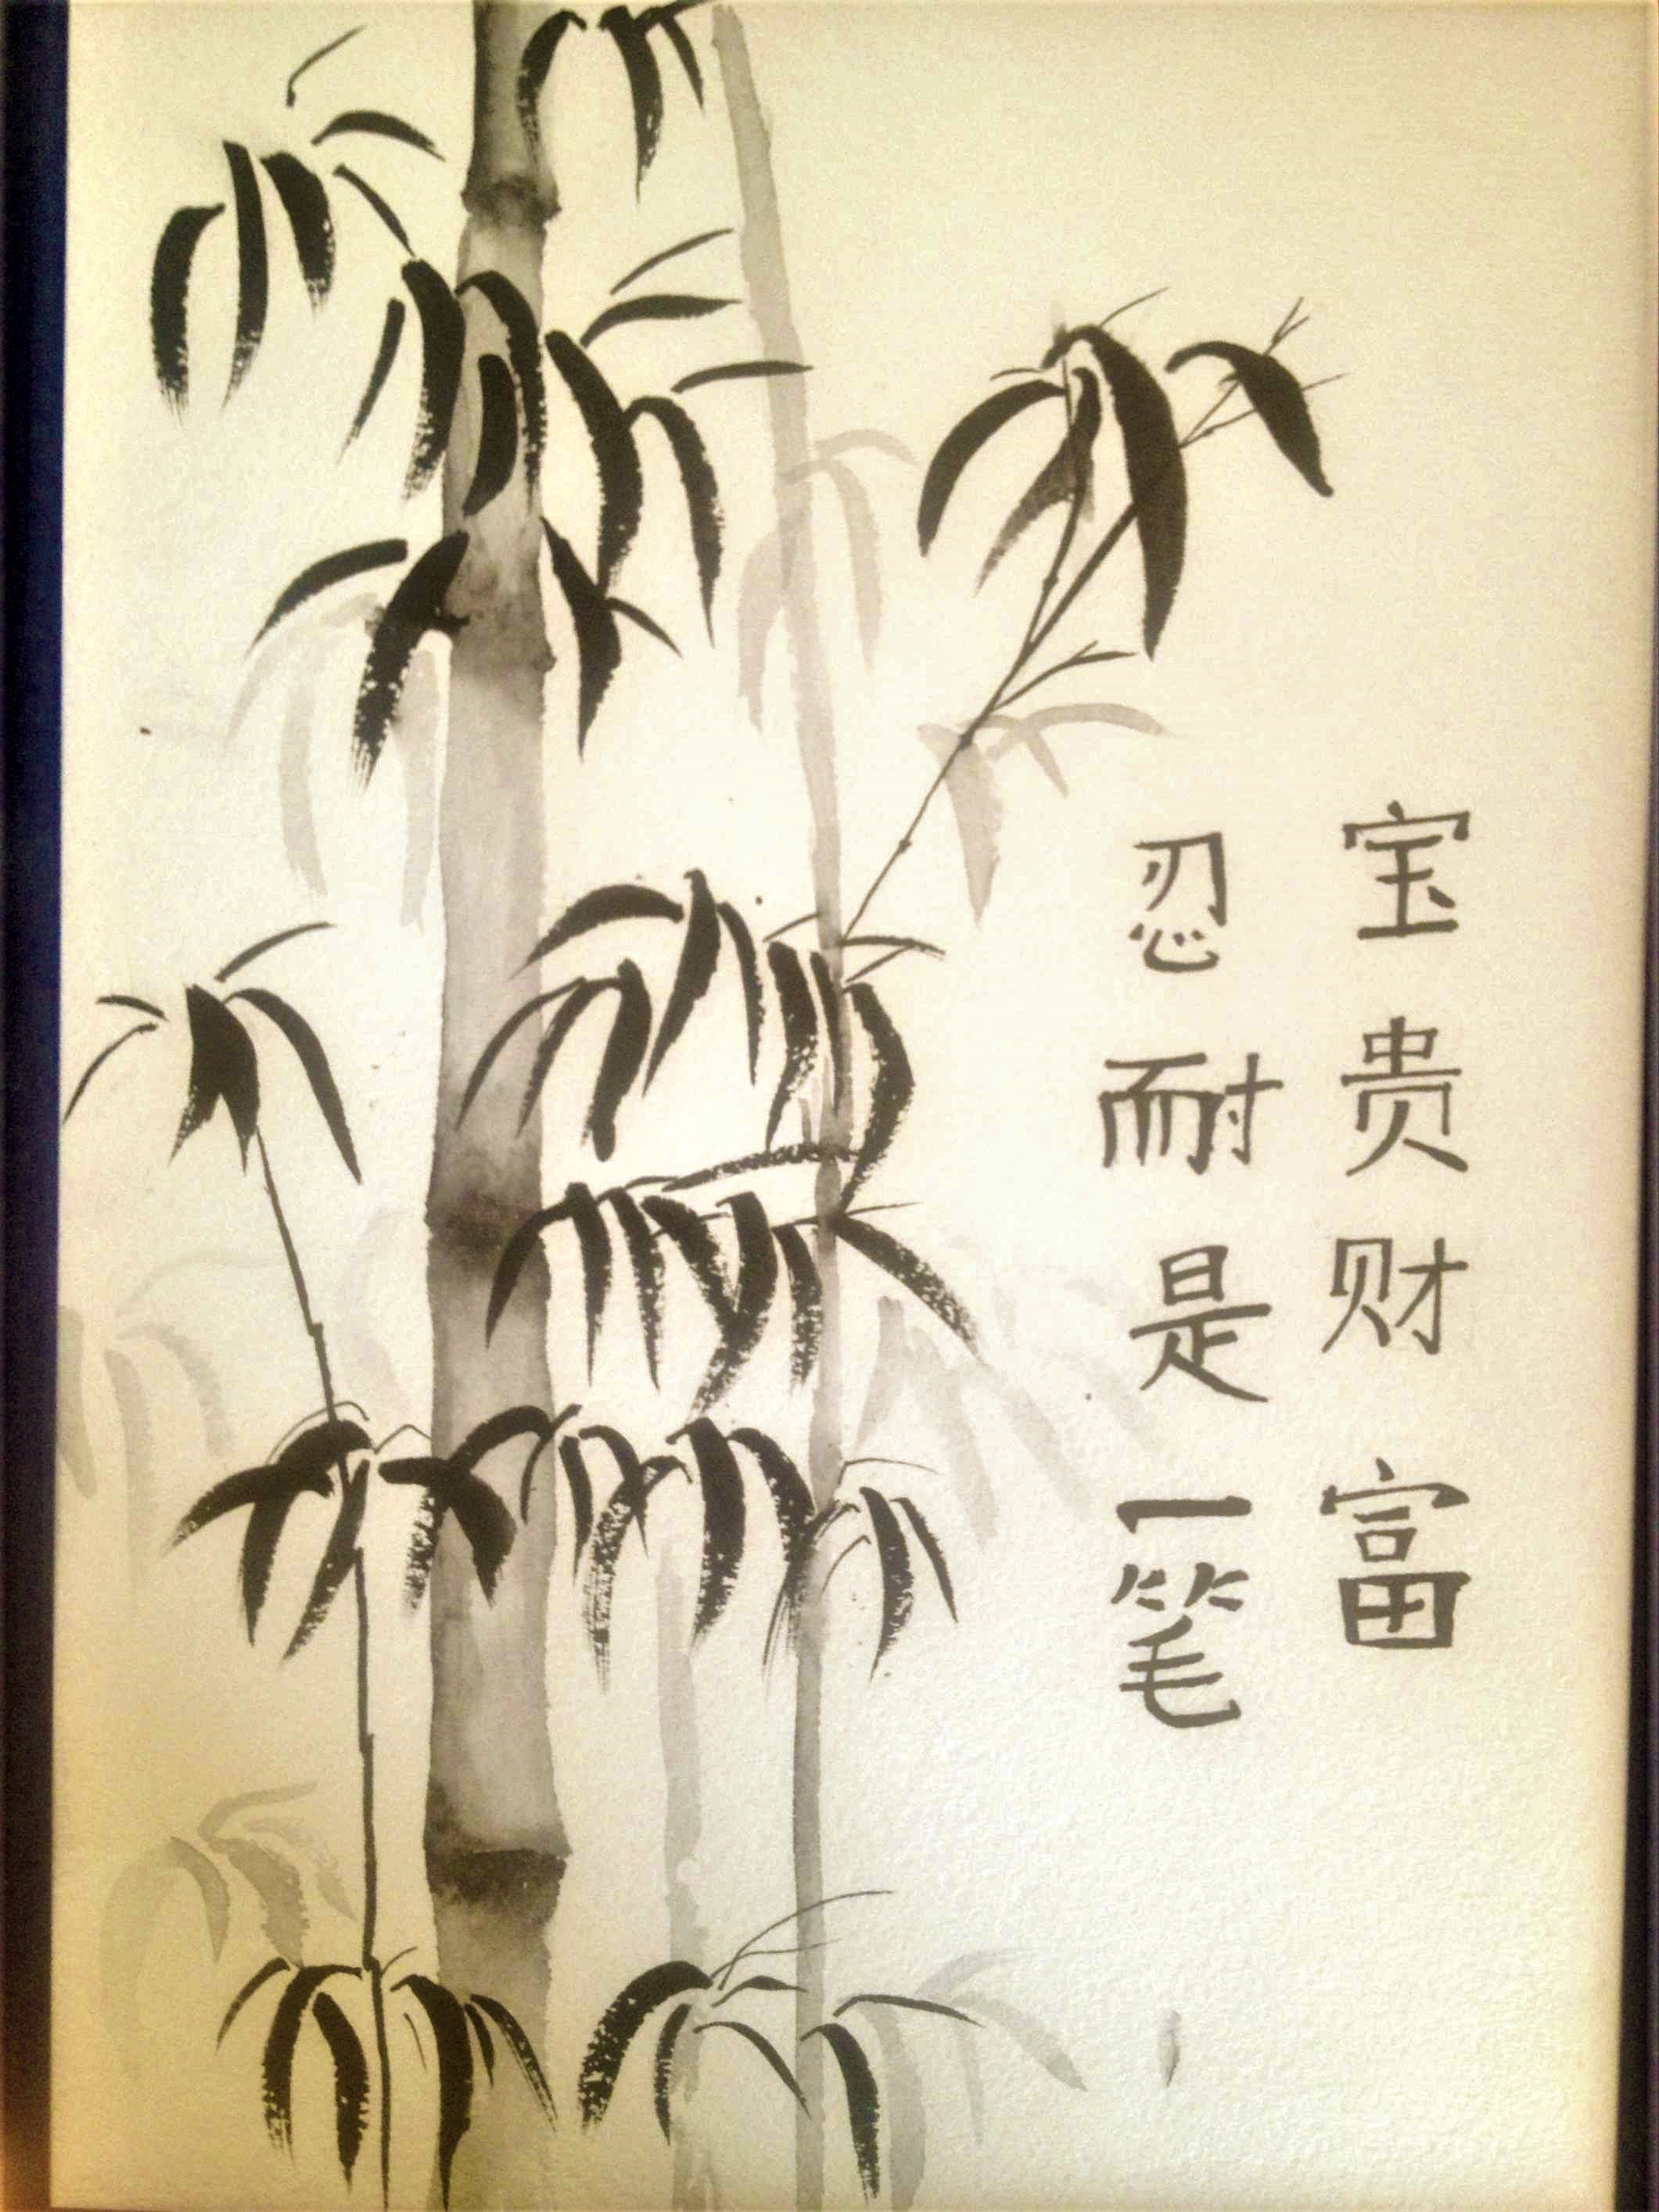 忍耐是一笔
宝贵财富